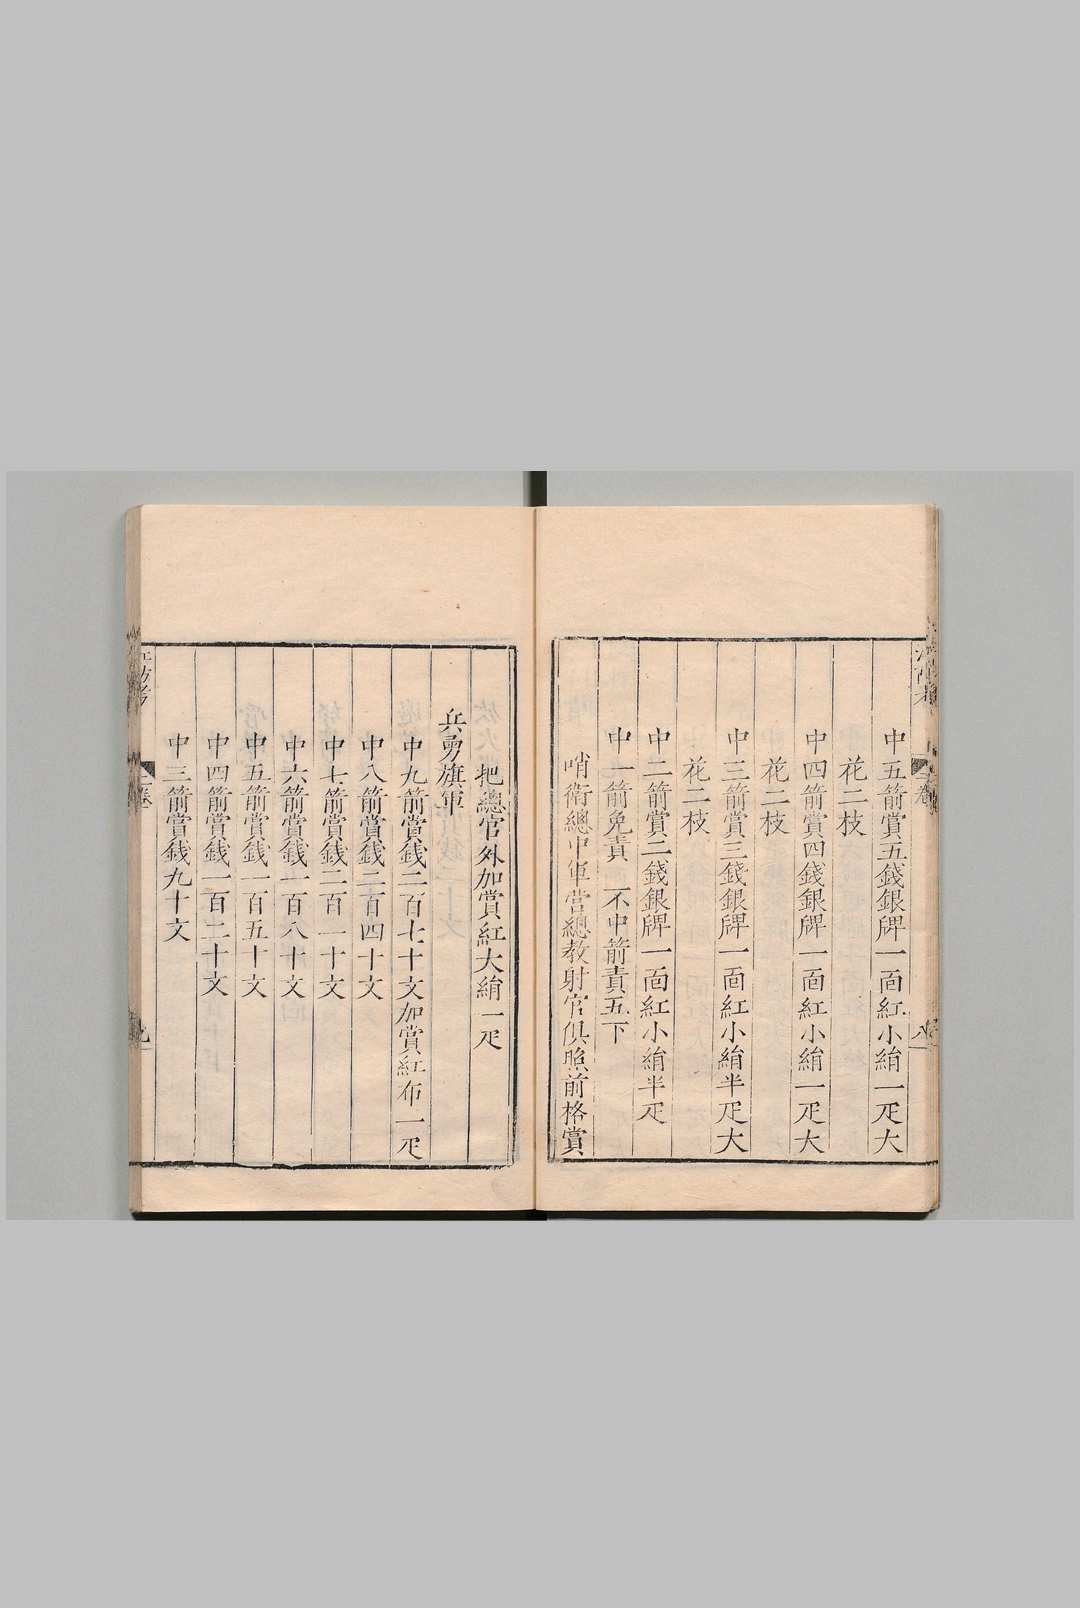 中五箭賞五錢銀牌一面紅小絹一疋大
花二枝
中四箭賞四錢銀牌一面紅小絹一疋大
花二枝
中三箭賞三錢銀牌一面紅小絹半疋大
花二枝
中二箭賞二錢銀牌一面紅小絹半疋
中一箭免責 不中箭責五下
哨衛總中軍營總教射官俱照前格賞
把總官外加賞紅大絹一疋
兵勇旗軍
中九箭賞錢二百七十文加賞紅布一疋
中八箭賞錢二百四十文
中七箭賞錢二百一十文
中六箭賞錢一百八十文
中五箭賞錢一百五十文
中四箭賞錢一百二十文
中三箭賞錢九十文
江防考